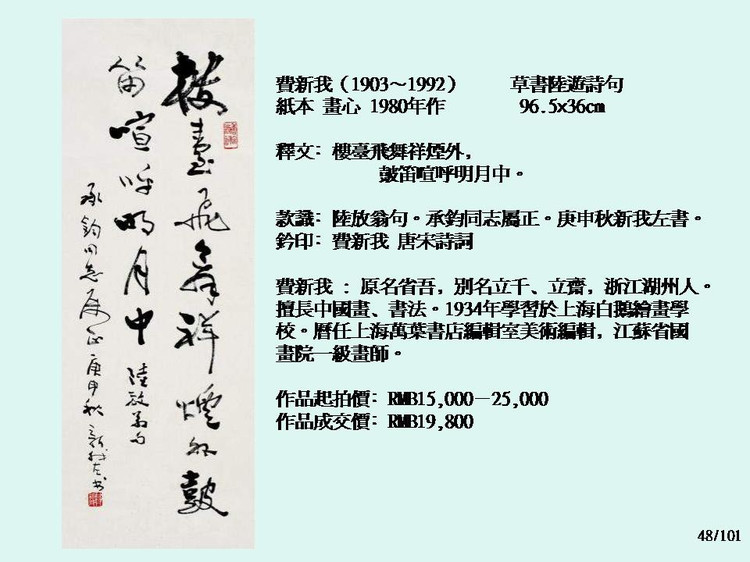 樓臺飛舞祥煙外鼓
笛喧呼明月中 陸放翁句
承鈞同志屬正 庚申秋新我左書
費新我（1903～1992） 草書陸遊詩句
紙本 畫心 1980年作 96.5x36cm
釋文：樓臺飛舞祥煙外，
鼓笛喧呼明月中。
款識：陸放翁句。承鈞同志屬正。庚申秋新我左書。
鈐印：費新我 唐宋詩詞
費新我 ：原名省吾，別名立千、立齋，浙江湖州人。
擅長中國畫、書法。1934年學習於上海白鵝繪畫學
校。曆任上海萬葉書店編輯室美術編輯，江蘇省國
畫院一級畫師。
作品起拍價：RMB15,000－25,000
作品成交價：RMB19,800
48/101